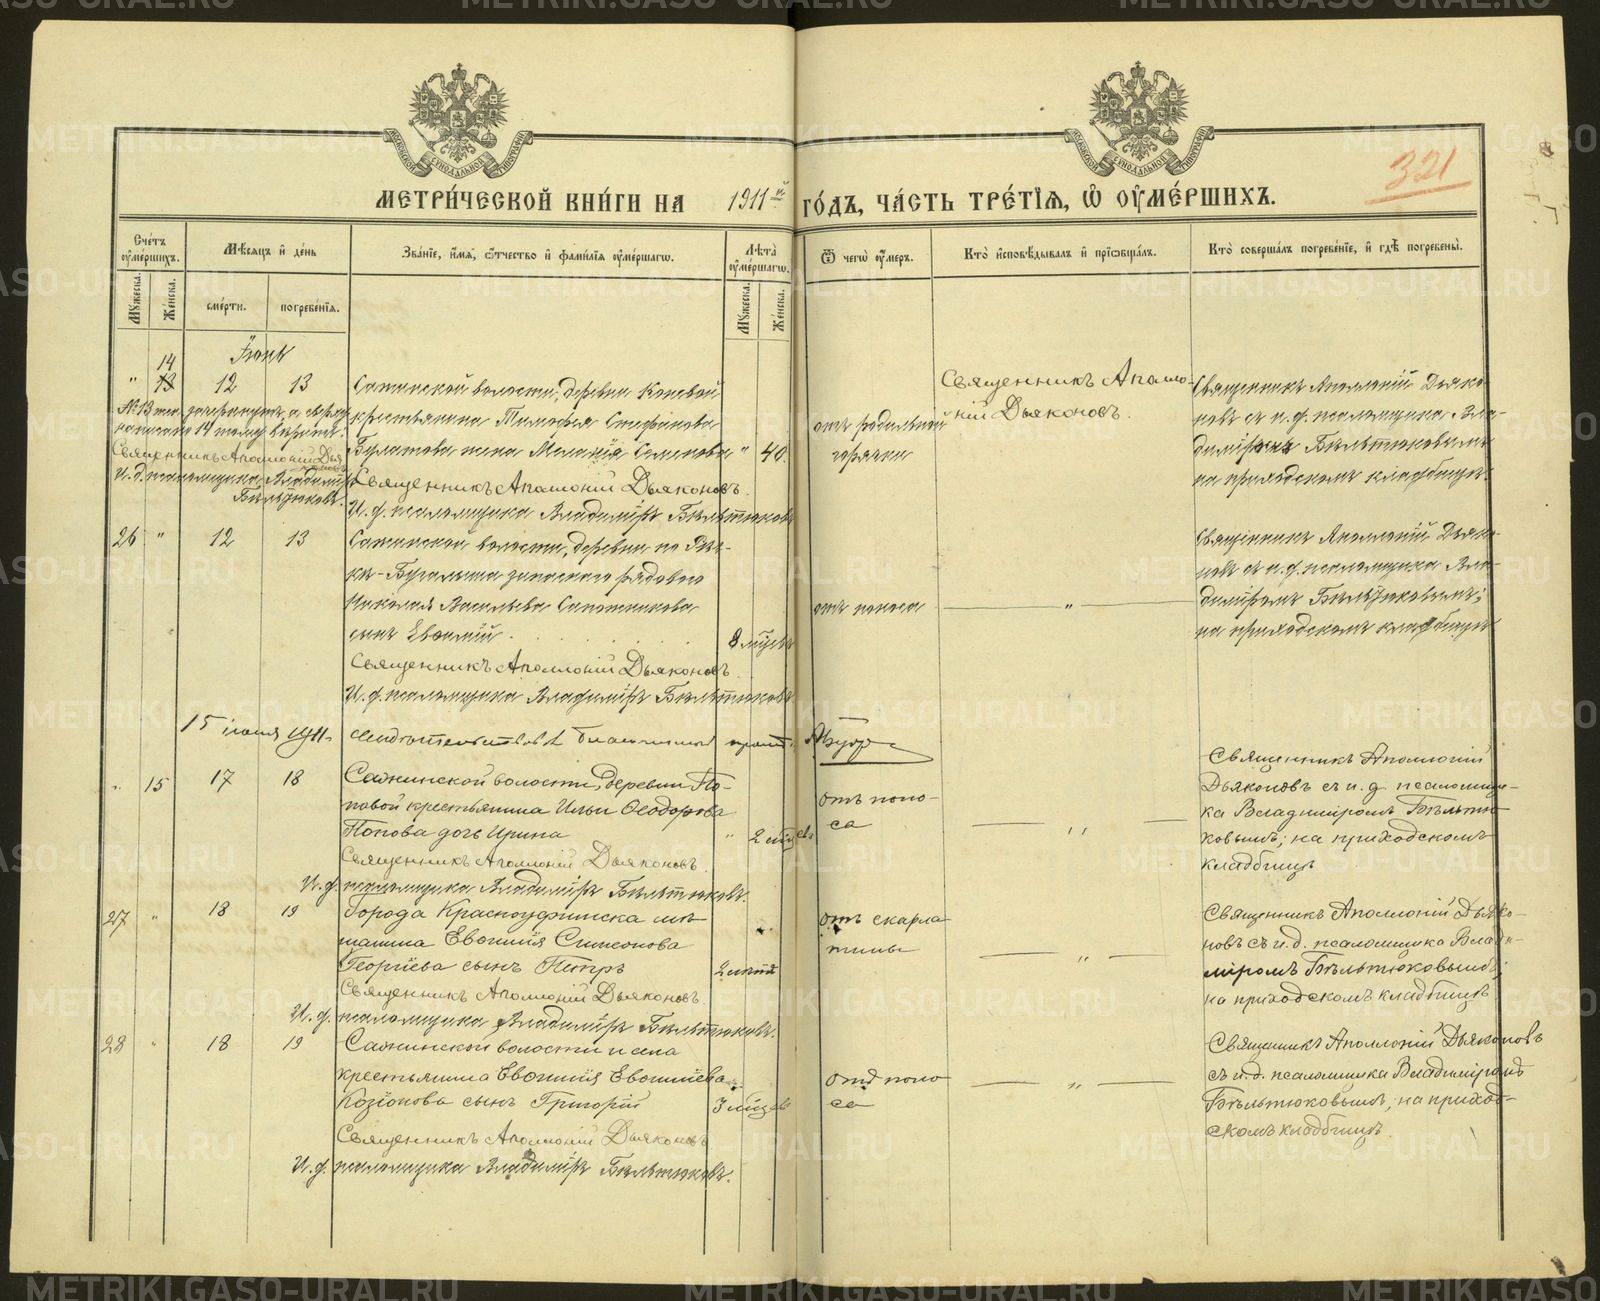 321
МЕТРИ́ЧЕСКОЙ КНИ́ГИ НА 1911й ГО́ДЪ, ЧА́СТЬ ТРЕ́ТІѦ, Ѡ҆ ОУ҆МЕ́РШИХЪ.
Сче́тъ оу҆ме́ршихъ.
Мѣ́сѧцъ и҆ де́нь
Зва́нїе, и҆́мѧ, ѻ҆́тчество и҆ фами́лїѧ оу҆ме́ршагѡ.
Лѣ́та оу҆ме́ршагѡ.
Ѿ чегѡ̀ оу҆́меръ.
Кто̀ и҆сповѣ́дывалъ и҆ прїѡбща́лъ.
Кто̀ соверша́лъ погребе́нїе, и҆ гдѣ̀ погребены̀.
Му́жеска.
Же́нска.
сме́рти.
погребе́нїѧ.
Му́жеска.
Же́нска.
Іюнь
14
" 13 12 13
Сажинской волости, деревни Коневой
крестьянина Тимофея Стефанова
Булатова жена Меланія Семенова " 40.
отъ родильной
горячки
Священникъ Аполло-
ній Дьяконовъ.
Священникъ Аполлоній Дьяко
новъ съ и.ф. псаломщика Вла-
диміромъ Бѣльтюковымъ
на приходскомъ кладбищѣ.
написано 14 тому вѣрить.
Священникъ Аполлоній Дья
коновъ
И.д. псаломщика Владиміръ
Бѣльтюковъ.
Священникъ Аполлоній Дьяконовъ.
И.ф. псаломщика Владиміръ Бѣльтюковъ
26 " 12 13
Сажинской волости, деревни по Рѣч-
кѣ-Бугалыша запасного рядового
Николая Васильева Сапожникова
сынъ Евѳимій 8 мѣсяц.
отъ поноса
"
Священникъ Аполлоній Дьяко-
новъ съ и.ф. псаломщика Вла-
диміромъ Бѣльтюковымъ;
на приходскомъ кладбищѣ
Священникъ Аполлоній Дьяконовъ.
И.ф. псаломщика Владиміръ Бѣльтюковъ
15 іюня 1911 г. свидѣтельствовалъ Благочинный
" 15 17 18
Сажинской волости, деревни По-
повой крестьянина Ильи Ѳеодорова
Попова дочь Ирина " 2 мѣсяц.
отъ поно-
са
"
Священникъ Аполлоній
Дьяконовъ съ и.д. псаломщи-
ка Владиміромъ Бѣльтю-
ковымъ; на приходскомъ
кладбищѣ
Священникъ Аполлоній Дьяконовъ.
И.ф. псаломщика Владиміръ Бѣльтюковъ.
27 " 18 19
Города Красноуфимска мѣ-
щанина Евѳимія Симеонова
Георгіева сынъ Петръ 2 лѣтъ
отъ скарла
тины
"
Священникъ Аполлоній Дьяко-
новъ съ и.д. псаломщика Влади-
міромъ Бѣльтюковымъ;
на приходскомъ кладбищѣ
Священникъ Аполлоній Дьяконовъ.
И.ф. псаломщика Владиміръ Бѣльтюковъ.
28 " 18 19
Сажинской волости и села
крестьянина Евѳимія Евѳиміева
Козіонова сынъ Григорій 3 мѣсяц.
отъ поно
са
"
Священникъ Аполлоній Дьяконовъ
съ и.д. псаломщика Владиміромъ
Бѣльтюковымъ, на приход-
скомъ кладбищѣ.
Священникъ Аполлоній Дьяконовъ
И.ф. псаломщика Владиміръ Бѣльтюковъ.
METRIKI.GASO-URAL.RU